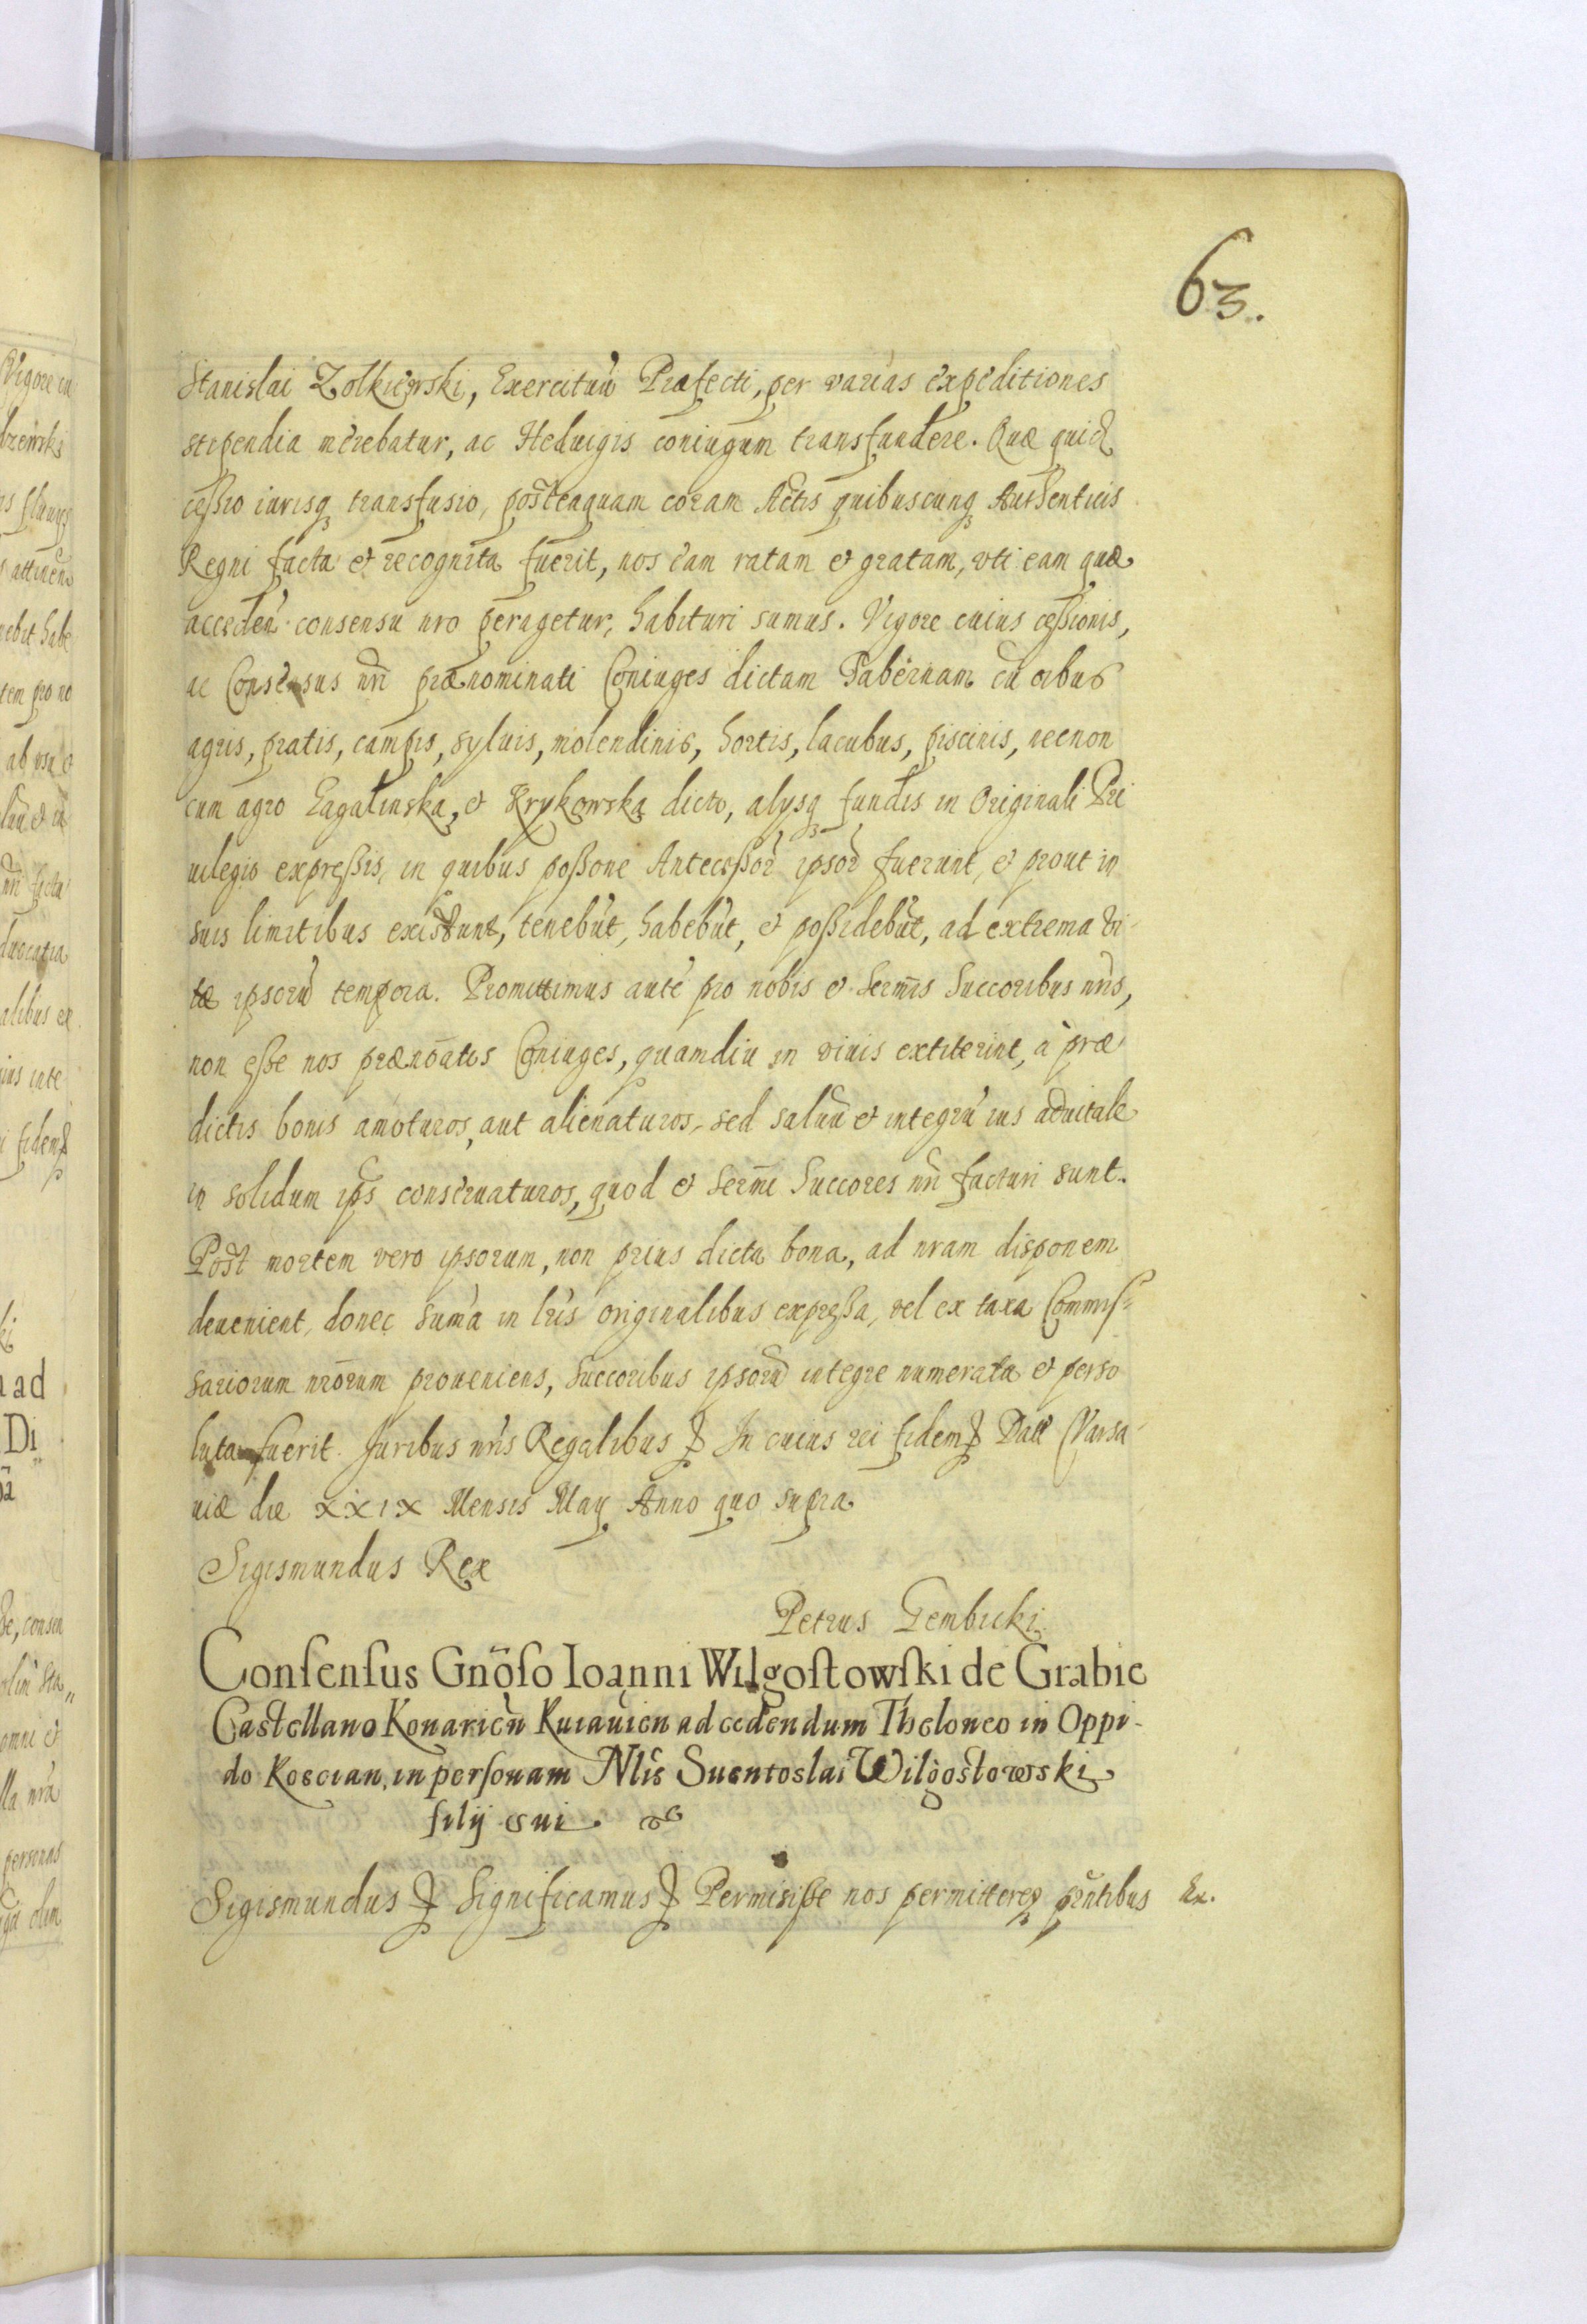 63.
Stanislai Zolkiewski, Exercituũ Præfecti, per varias expeditiones
stipendia merebatur, ac Heduigis coniugum transfundere. Quæ quid
cessio iurisq₃ transfusio, posteaquam coram Actis quibuscunq₃ Authenticis
Regni facta et recognita fuerit, nos eam ratam et gratam, vti eam quæ
acceden̄ consensu nro peragetur, habituri sumus. Vigore cuius cessionis,
ac Consensus nr̄i prænominati Coniuges dictam Tabernam cū oĩbus
agris, pratis, campis, syluis, molendinis, hortis, lacubus, piscinis, necnon
cum agro Lagalinska, et Krykowska dicto, alysq₃ fundis in Originali Pri
uilegio expressis, in quibus possone Antecessor̄ ipsor̄ fuerunt, et prout in
suis limitibus existunt, tenebūt, habebūt, et possidebūt, ad extrema vi-
tæ ipsorū tempora. Promittimus autē pro nobis et Serm̄is Succoribus nr̄is,
non esse nos prænoātos Coniuges, quamdiu in viuis extiterint, à præ
dictis bonis amoturos, aut alienaturos, sed saluū et integrū ius aduitale
in solidum ip̄s conseruaturos, quod et Serm̄i Succores nr̄i facturi sunt.
Post mortem vero ipsorum, non prius dicta bona, ad nram disponem
deuenient, donec sum̄a in lr̄is originalibus expressa, vel ex taxa Commis=
sariorum nr̄orum proueniens, Succoribus ipsorū integre numerata et perso
luta fuerit. Juribus nr̄is Regalibus ꝭ In cuius rei fidem ꝭ Dat̄ Varsa-
uiæ die XXIX Mensis May Anno quo supra
Sigismundus Rex
Petrus Gembicki
Consensus Gnöso Ioanni Wilgostowski de Grabie
Castellano Konarien̄ Kuiauien ad cedendum Theloneo in Oppi-
do Koscian, in personam Nlis Suentoslai Wilgostowski
filij sui.
Sigismundus ꝭ Significamus ꝭ Permisisse nos permittereq₃ pn̄tibus Ex.